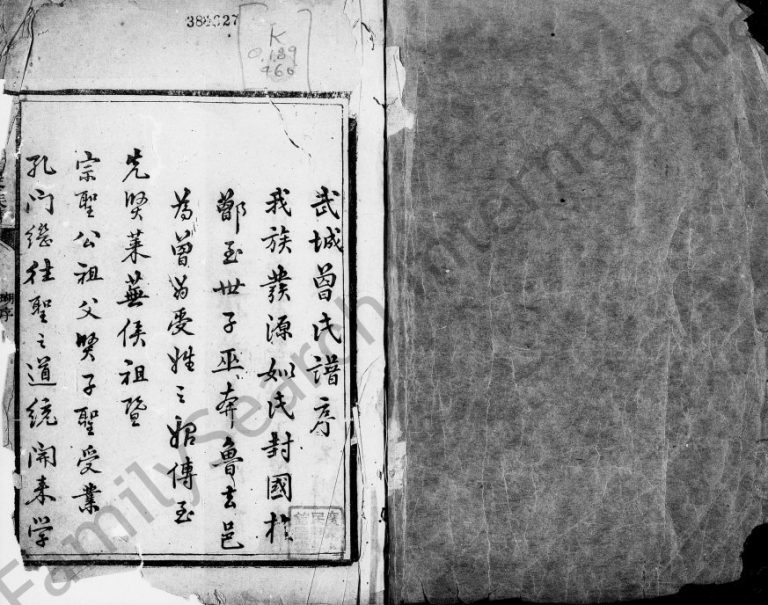 388627
K
0.189
460
武城曾氏譜序
我族發源姒氏封國於
鄫至世子巫奔魯去邑
為曾為受姓之始傳至
先賢萊蕪侯祖暨
宗聖公祖父賢子聖受業
孔門繼往聖之道統開来学
FamilySearch International